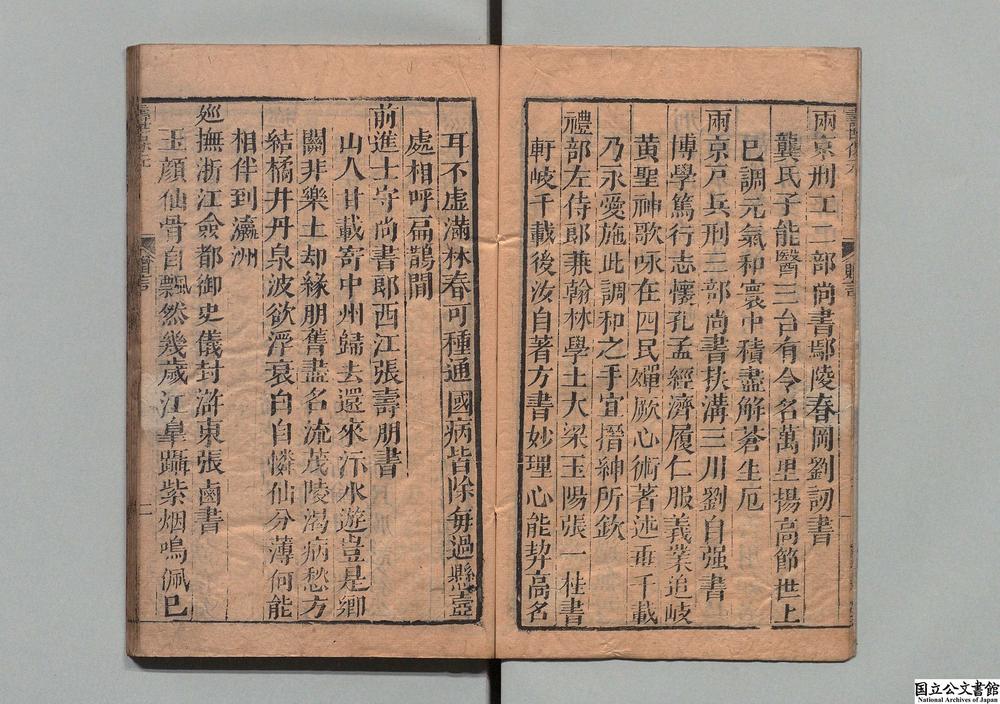 兩京刑工二部尚書鄢陵春岡劉訒書
龔氏子能醫三台有令名萬里揚高節世上
巳調元氣和寰中積盡解蒼生厄
兩京戸兵刑三部尚書扶溝三川劉自强書
博學篤行志懷孔孟經濟履仁服義業追岐
黄聖神歌咏在四民殫厥心術著述垂千載
乃永愛施此調和之手宜搢紳所欽
禮部左侍郎兼翰林學士大梁玉陽張一桂書
軒岐千載後汝自著方書妙理心能契高名
耳不虚滿林春可種通國病皆除每過懸壺
處相呼扁鵲閭
前進士守尚書郎西江張壽朋書
山人廿載寄中州歸去還來汴水遊豈是鄉
關非樂土却緣朋舊盡名流茂陵渴病愁方
結橘井丹泉波欲浮衰白自憐仙分薄何能
相伴到瀛洲
廵撫浙江僉都御史儀封滸東張鹵書
玉顔仙骨自飄然幾歲江皐躡紫烟鳴佩巳
國立公文書館
National Archives of Japan